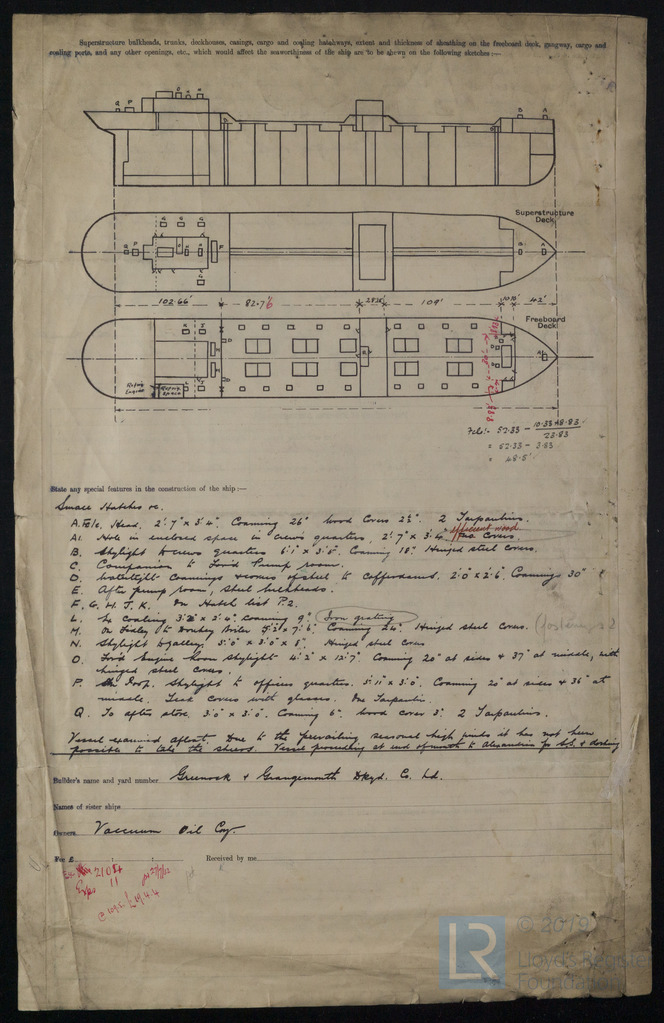 Superstructure bulkheads, trunks, deckhouses, casings, cargo and coaling hatchways, extent and thickness of sheathing on the freeboard deck, gangway, cargo and
coaling ports, and any other openings, etc., which would affect the seaworthiness of the ship are to be shewn on the following sketches:—
Superstructure
Deck
102.66' 82.76 28.28 109' 42'
Freeboard
Deck
Refrig
Engine
Refrig
Space
Fcle:- 52.33 - 10.33 × 8.83
23.83
= 52.33 - 3.83
= 48.5'
State any special features in the construction of the ship:—
Small Hatches &c.
A. Fo'c. Head. 2'.7" x 3'.4". Coaming 26" Wood Covers 2½". 2 Tarpaulins.
efficient wood
A1. Hole in enclosed space in crews quarters, 2'.7" x 3'.4" Covers.
B. Skylight to crews quarters 6'.1" x 3'.8". Coaming 18". Hinged steel covers.
C. Companion to Fore'd Pump room.
D. Watertight Coamings & covers of steel to Cofferdams. 2'.0" x 2'.6". Coamings 30"
E. After pump room, steel bulkheads.
F. G. H. J. K. On Hatch list P.2.
L. To coaling 3'.2" x 2'.4". Coaming 9". Iron grating
M. On Fidley to Donkey Boiler 5'.3" x 7'.6". Coaming 24". Hinged steel covers.
N. Skylight to galley. 3'.0" x 3'.0" x 8". Hinged steel covers
O. Engine Room Skylight 4'.2" x 12'.7". Coaming 20" at sides & 37" at middle, with
hinged steel covers.
P. Poop. Skylight to officers quarters. 5'.11" x 3'.0". Coaming 20" at sides & 36" at
middle. Teak covers with glasses. One Tarpaulin.
Q. To after store. 3'.0" x 3'.0". Coaming 6". Wood cover 3". 2 Tarpaulins.
Vessel examined afloat. Due to the prevailing seasonal high winds it has not been
possible to take the sheers. Vessel proceeding at end of month to Alexandria for S.S. & docking
Builder's name and yard number Greenock & Grangemouth Dkyd. Co. Ld.
Names of sister ships
Owners Vacuum Oil Coy.
Fee £ Received by me
Exps 11
© 2019
LR
Lloyd's Register
Foundation